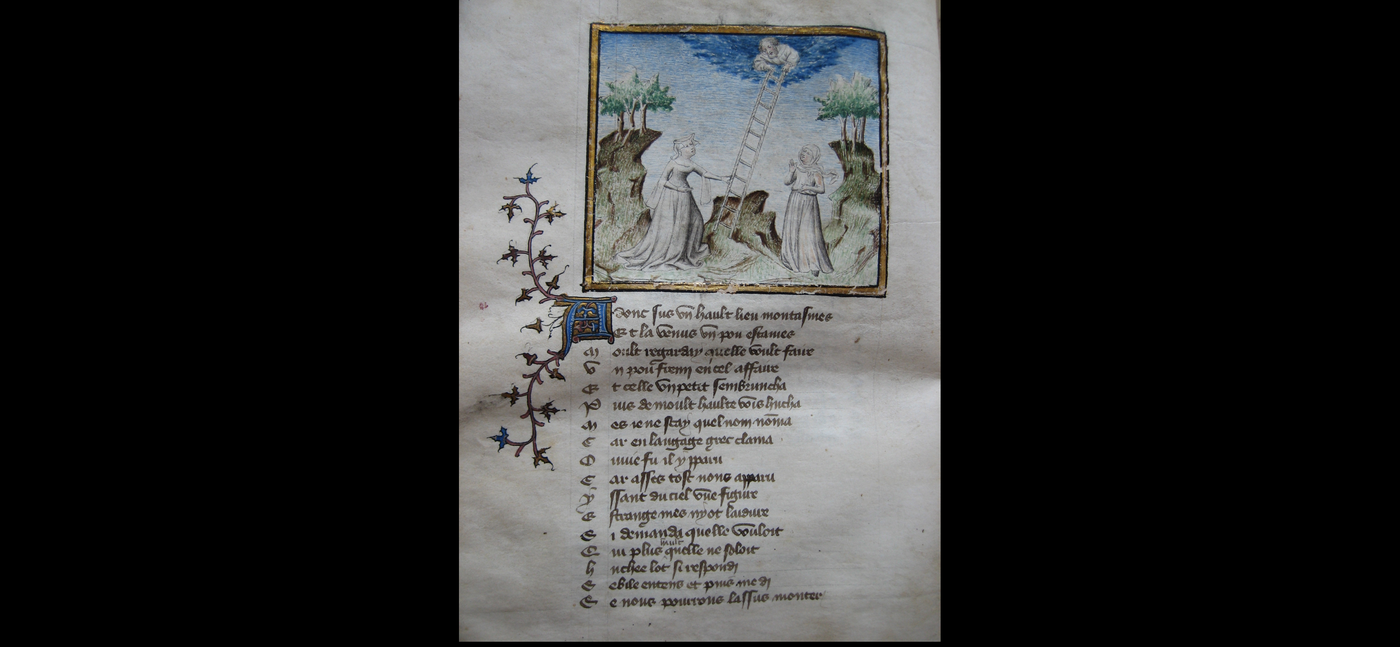 Adonc sus vn hault lieu montasmes
Et la venus vn pou estames
Moult regarday quelle voult faire
Vn pou fremi en cel affaire
Et celle vn petit sembruncha
Puis de moult haulte vois hucha
Mes ie ne scay quel nom nōma
Car en langage grec clama
Ouuie fu il y pparu
Car asses tost nous apparu
Yssant du ciel vne figure
Estrange mes nyot laidure
Si demanda quelle vouloit
Cui plus quelle ne soloit
huchee lot si respondi
Sebile entens et puis me di
Se nous pourrons lassus monter